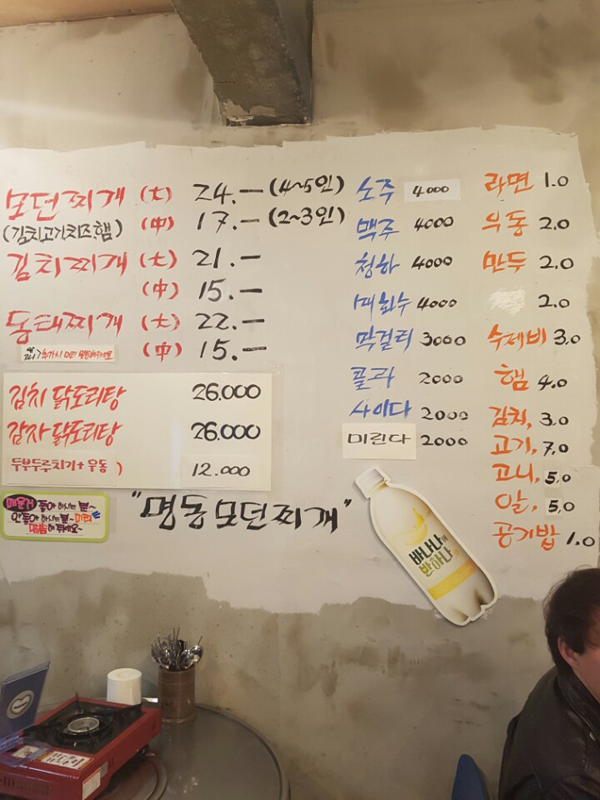 모던찌개 (大) 24.- (4~5인)
(김치고기치즈.햄) (中) 17.- (2~3인)
김치찌개 (大) 21.-
(中) 15.-
동태찌개 (大) 22.-
(中) 15.-
김치 닭도리탕 26,000
감자 닭도리탕 26,000
두부두루치기+우동) 12.000
"명동모던찌개"
소주 4000
맥주 4000
청하 4000
매화수 4000
막걸리 3000
콜라 2000
사이다 2000
미린다 2000
바나나에
반하나
라면 1.0
우동 2.0
만두 2.0
2.0
수제비 3.0
햄 4.0
김치, 3.0
고기, 7.0
고니, 5.0
알, 5.0
공기밥 1.0